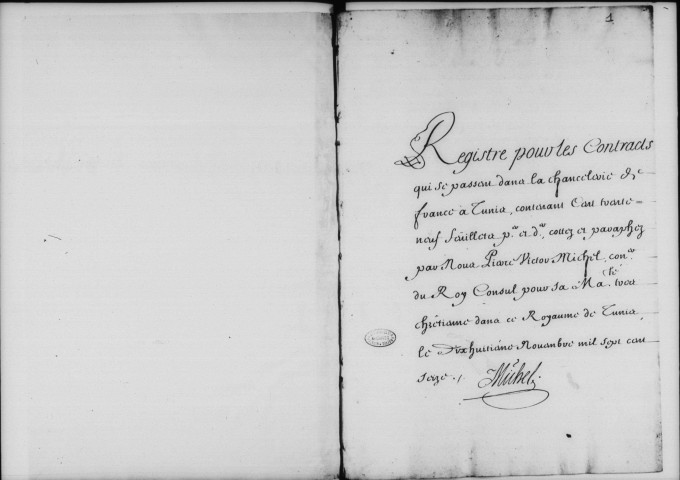 1
Registre pour les Contracts
qui se passent dans la chancelerie de
france à Tunis, contenant Cent trante-
neuf feuillets p.er et d.er, cottez et paraphez
par Nous Pierre Victor Michel, con.er
du Roy Consul pour sa Ma.té tres
chrêtienne dans ce Royaume de Tunis,
le dixhuitiéme Novembre mil sept cent
seize /.
Michel